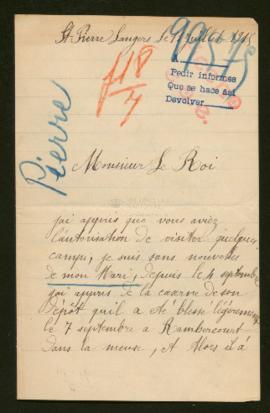 St Pierre Langers Le 12 Juillet 1915
A
Pedir informes
Que se hace así
Devolver
f18
4
Pierre
Monsieur Le Roi
j'ai appris que vous aviez
l'autorisation de visiter quelques
camps, je suis sans nouvelles
de mon Mari, depuis le 4 septembre
j'ai appris de la caserne de son
Dépôt qu'il a été blessé légèrement
le 7 septembre a Rambercourt
dans la meuse, et Alors il a